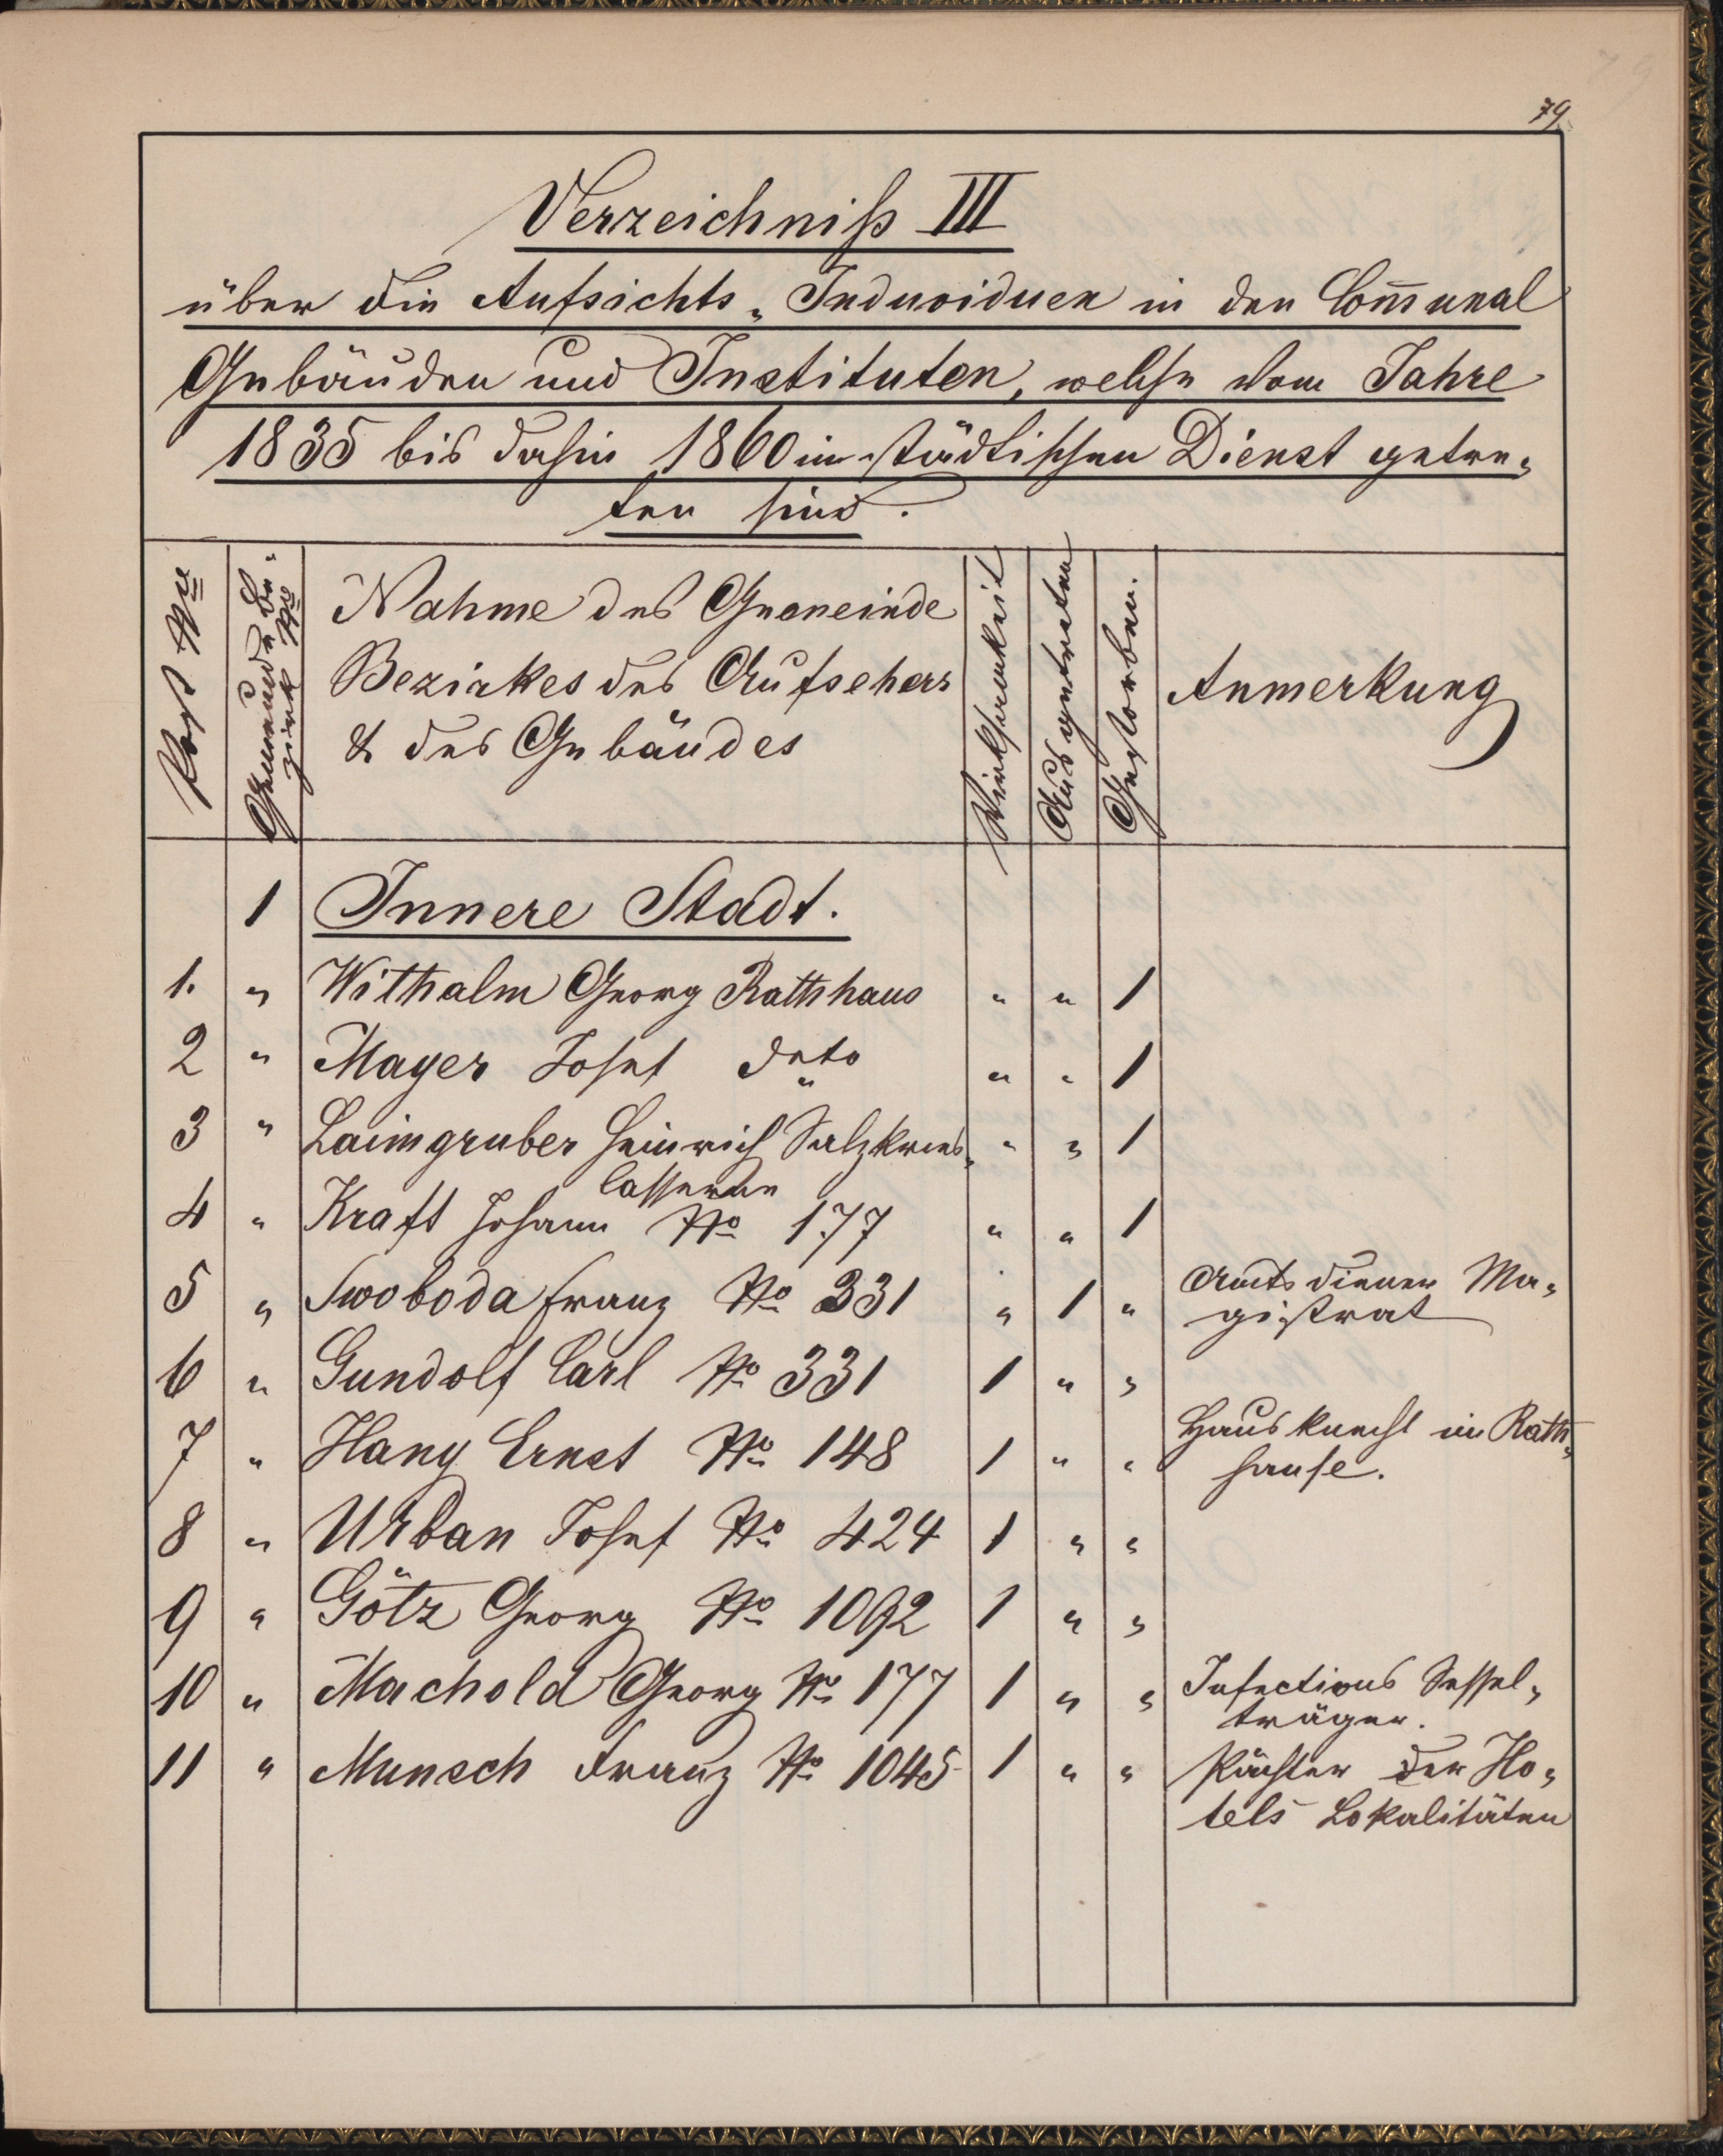 79.
Verzeichniß III
über die Aufsichts„Induviduen in den Com̄unal
Gebäuden und Instituten, welche vom Jahre
1835 bis dahin 1860 im städtischen Dienst getre„
ten sind.
Post No
Gemeinde Be„
zirk No
Nahme des Gemeinde
Bezirkes des Aufsehers
& des Gebäudes
Wirksamkeit
Ausgetreten
Gestorben.
Anmerkung
1 Innere Stadt.
1. „ Withalm Georg Rathhaus „ „ 1
2 „ Mayer Josef deto „ „ 1
3 „ Laimgruber Heinrich Salzkries„ „ „ 1
Casserne
4 „ Kraft Johann No 177 „ „ 1
5 „ Swoboda Franz No 331 „ 1 „ Amtsdiener Ma„
gistrat
6 „ Gundolf Carl No 331 1 „ „
7 „ Hany Ernst No 148 1 „ „ Hausknecht im Rath„
hause.
8 „ Urban Josef No 424 1 „ „
9 „ Götz Georg No 1092 1 „ „
10 „ Machold Georg No 177 1 „ „ Infections Sessel„
träger.
11 „ Munsch Franz No 1045 1 „ „ Pächter der Ho„
tels Lokalitäten